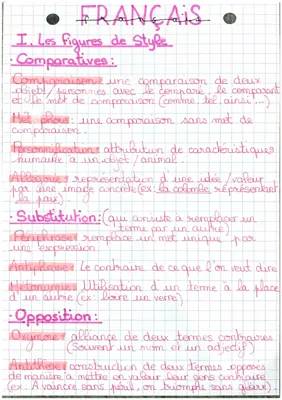 FRANÇAIS
I. Les figures de Style
• Comparatives :
Comparaison : une comparaison de deux
objets/personnes avec le comparé, le comparant
et le mot de comparaison (comme, tel, ainsi...)
Métaphore : une comparaison sans mot de
comparaison.
Personnification : attribution de caractéristiques
humaine à un objet/animal.
Allégorie : représentation d'une idée/valeur
par une image concrète (ex: la colombe représentant
la paix)
• Substitution : (qui consiste à remplacer un
terme par un autre)
Périphrase : remplace un mot unique par
une expression.
Antiphrase : Le contraire de ce que l'on veut dire
Métonymie : Utilisation d'un terme à la place
d'un autre (ex : boire un verre)
• Opposition :
Oxymore : alliance de deux termes contraires
(Souvent un nom et un adjectif)
Antithèse : construction de deux termes opposés
de manière à mettre en valeur leur sens contraire
(ex : A vaincre sans péril, on triomphe sans gloire).